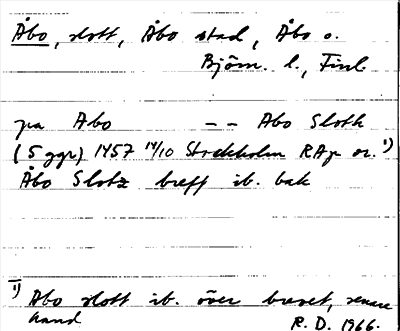 Åbo, slott, Åbo stad, Åbo o.
Björn. l., Finl.
pa Abo -- Abo Sloth
(5 ggr) 1457 14/10 Stockholm RAp or. 1)
Åbo Slotz breff ib. bak
1) Abo slott ib. över brevet, senare
hand R. D. 1966.